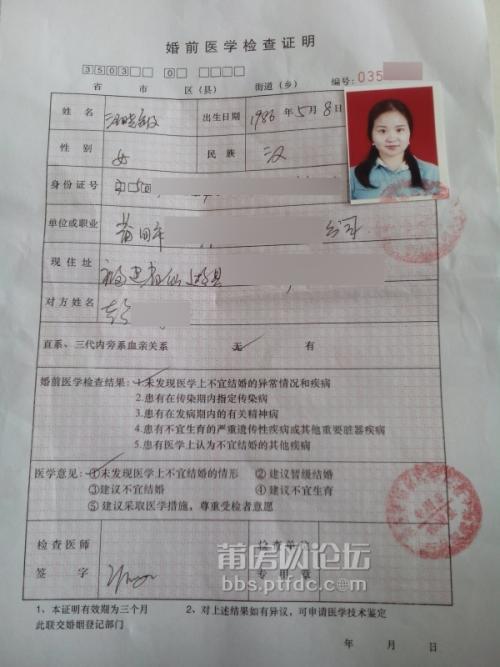 婚前医学检查证明
3503 0
省 市 区(县) 街道(乡) 编号:035
姓名 出生日期 1986年5月8日
性别 女 民族 汉
身份证号
单位或职业 莆田市 公司
现住址 福建省仙游县
对方姓名
直系、三代内旁系血亲关系 无 有
婚前医学检查结果: 1.未发现医学上不宜结婚的异常情况和疾病
2.患有在传染期内指定传染病
3.患有在发病期内的有关精神病
4.患有不宜生育的严重遗传性疾病或其他重要脏器疾病
5.患有医学上认为不宜结婚的其他疾病
医学意见: ①未发现医学上不宜结婚的情形 ②建议暂缓结婚
③建议不宜结婚 ④建议不宜生育
⑤ 建议采取医学措施,尊重受检者意愿
检查医师 检查单位
签字 专用章
莆房网论坛
bbs.ptfdc.com
1、本证明有效期为三个月 2、对上述结果如有异议,可申请医学技术鉴定
此联交婚姻登记部门
年 月 日